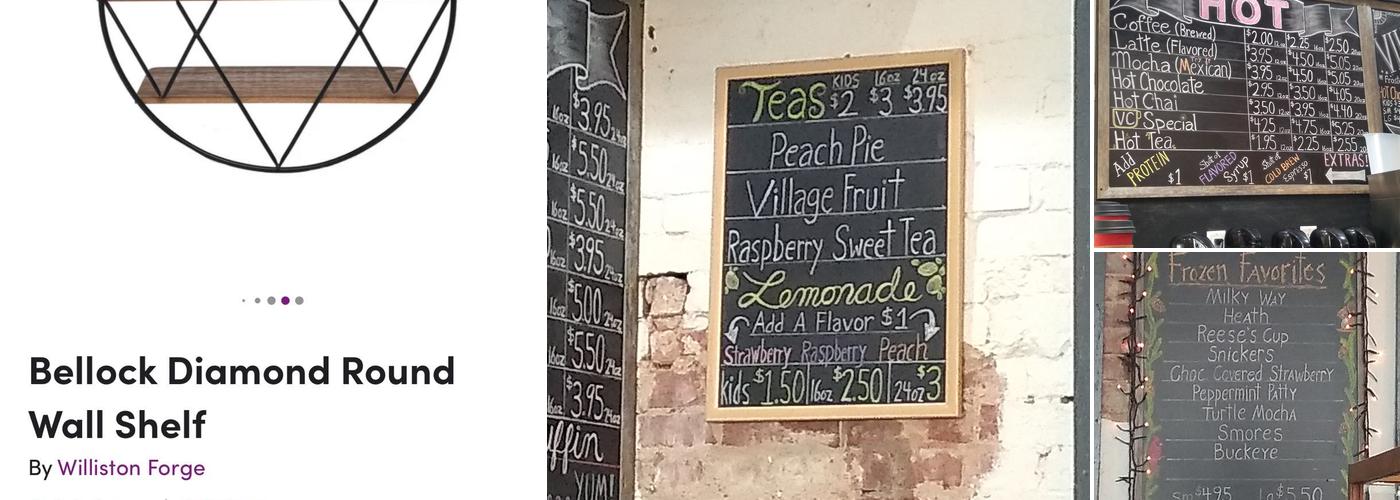 Bellock Diamond Round
Wall Shelf
By Williston Forge
$3.95 24oz
16oz $5.50 24oz
16oz $5.50 24oz
16oz $3.95 24oz
16oz $5.00 24oz
16oz $5.50 24oz
16oz $3.95 24oz
YUM!
KIDS 16oz 24oz
Teas $2 $3 $3.95
Peach Pie
Village Fruit
Raspberry Sweet Tea
Lemonade
Add A Flavor $1
Strawberry Raspberry Peach
kids $1.50 16oz $2.50 24oz $3
HOT
Coffee (Brewed) $2.00 12oz $2.25 16oz $2.50 20oz
Latte (Flavored) $3.95 12oz $4.50 16oz $5.05 20oz
Mocha (Mexican) $3.95 12oz $4.50 16oz $5.05 20oz
Hot Chocolate $2.95 12oz $3.50 16oz $4.05 20oz
Hot Chai $3.50 12oz $3.95 16oz $4.40 20oz
VC Special $4.25 12oz $4.75 16oz $5.25 20oz
Hot Tea $1.95 12oz $2.25 16oz $2.55 20oz
Add PROTEIN $1
Shot of FLAVORED Syrup $1
Shot of COLD BREW Espresso $1
EXTRAS!
Frozen Favorites
Milky Way
Heath
Reese's Cup
Snickers
Choc Covered Strawberry
Peppermint Patty
Turtle Mocha
Smores
Buckeye
Sm $4.95 La $5.50